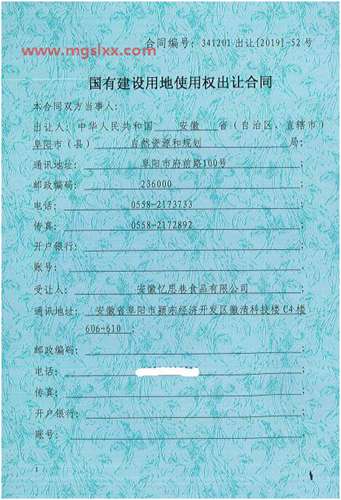 合同编号: 341201 出让[2019]-52 号
www.mgslxx.com
国有建设用地使用权出让合同
本合同双方当事人:
出让人: 中华人民共和国 安徽 省(自治区、直辖市)
阜阳市(县) 自然资源和规划 局;
通讯地址: 阜阳市府前路100号
邮政编码: 236000
电话: 0558-2173733
传真: 0558-2172892
开户银行:
账号:
受让人: 安徽忆思巷食品有限公司
通讯地址: 安徽省阜阳市颍东经济开发区徽清科技楼 C4 楼
606-610
邮政编码:
电话:
传真:
开户银行:
账号:
1